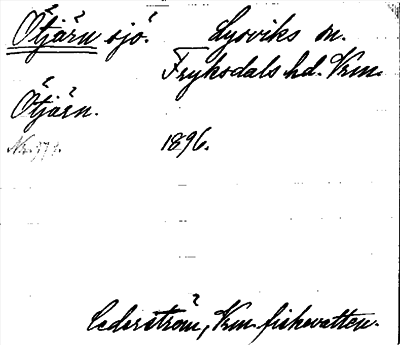 Ötjärn sjö. Lysviks sn.
Fryksdals hd. Vrm.
Ötjärn.
1896.
Cederström, Vrm. fiskevatten.